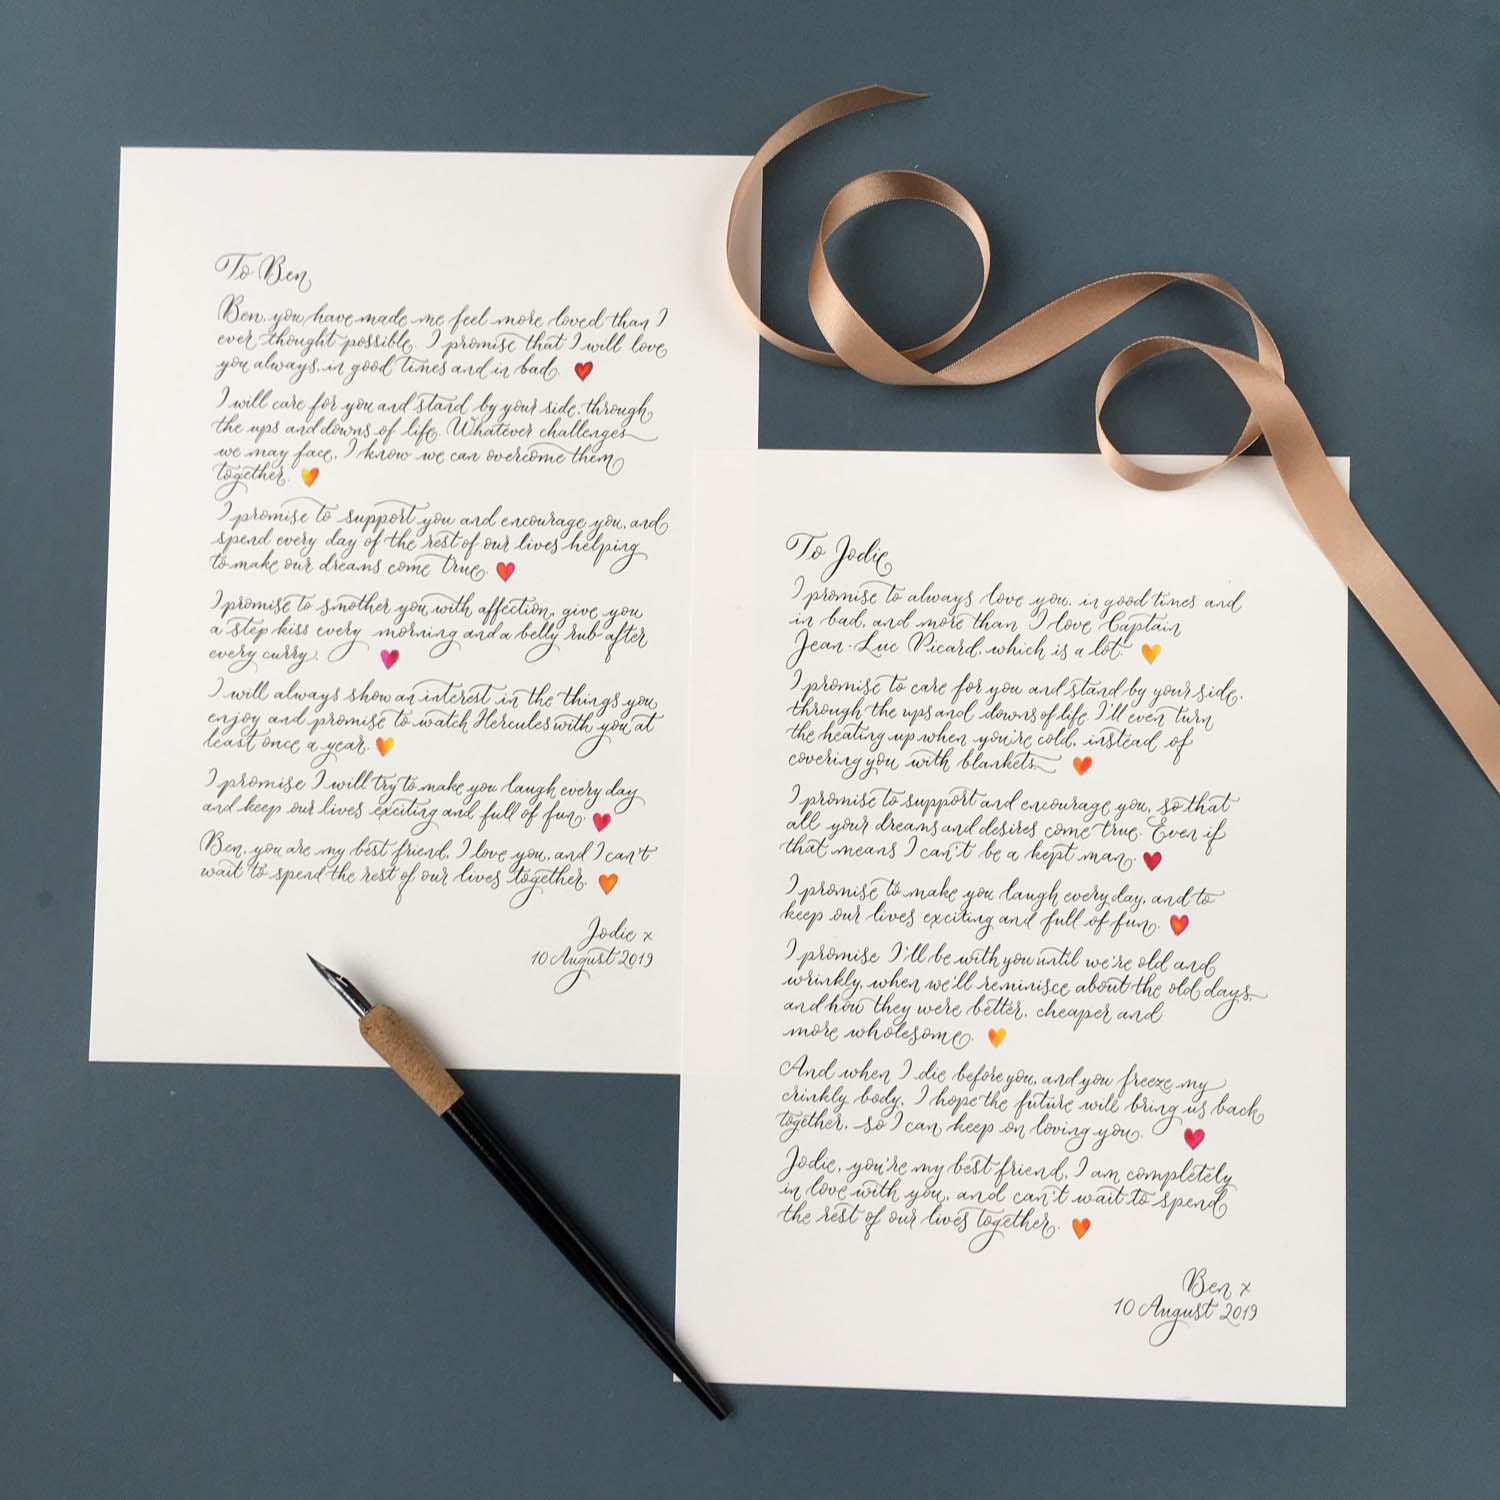 To Ben
Ben, you have made me feel more loved than I
ever thought possible. I promise that I will love
you always, in good times and in bad.
I will care for you and stand by your side, through
the ups and downs of life. Whatever challenges
we may face, I know we can overcome them
together.
I promise to support you and encourage you, and
spend every day of the rest of our lives helping
to make our dreams come true.
I promise to smother you with affection, give you
a step kiss every morning and a belly rub after
every curry.
I will always show an interest in the things you
enjoy and promise to watch Hercules with you at
least once a year.
I promise I will try to make you laugh every day
and keep our lives exciting and full of fun.
Ben, you are my best friend, I love you, and I can't
wait to spend the rest of our lives together.
Jodie x
10 August 2019
To Jodie
I promise to always love you, in good times and
in bad, and more than I love Captain
Jean-Luc Picard, which is a lot.
I promise to care for you and stand by your side,
through the ups and downs of life. I'll even turn
the heating up when you're cold, instead of
covering you with blankets.
I promise to support and encourage you, so that
all your dreams and desires come true. Even if
that means I can't be a kept man.
I promise to make you laugh every day, and to
keep our lives exciting and full of fun.
I promise I'll be with you until we're old and
wrinkly, when we'll reminisce about the old days,
and how they were better, cheaper and
more wholesome.
And when I die before you, and you freeze my
crinkly body, I hope the future will bring us back
together, so I can keep on loving you.
Jodie, you're my best friend, I am completely
in love with you, and can't wait to spend
the rest of our lives together.
Ben x
10 August 2019